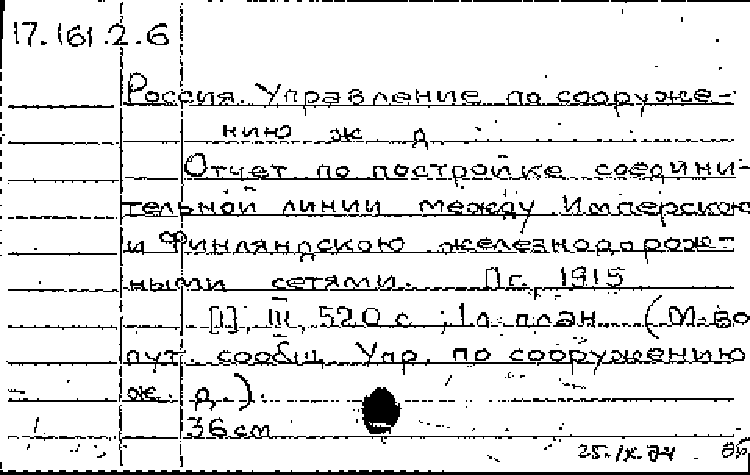 17.161.2.6
Россия. Управление по сооруже-
нию ж. д.
Отчет по постройке соедини-
тельной линии между Имперскою
и Финляндскою железнодорож-
ными сетями. Пг., 1915
[1], III, 520 с.; 1 л. план. (М-во
пут. сообщ. Упр. по сооружению
ж. д.).
36 см
25.IX.74